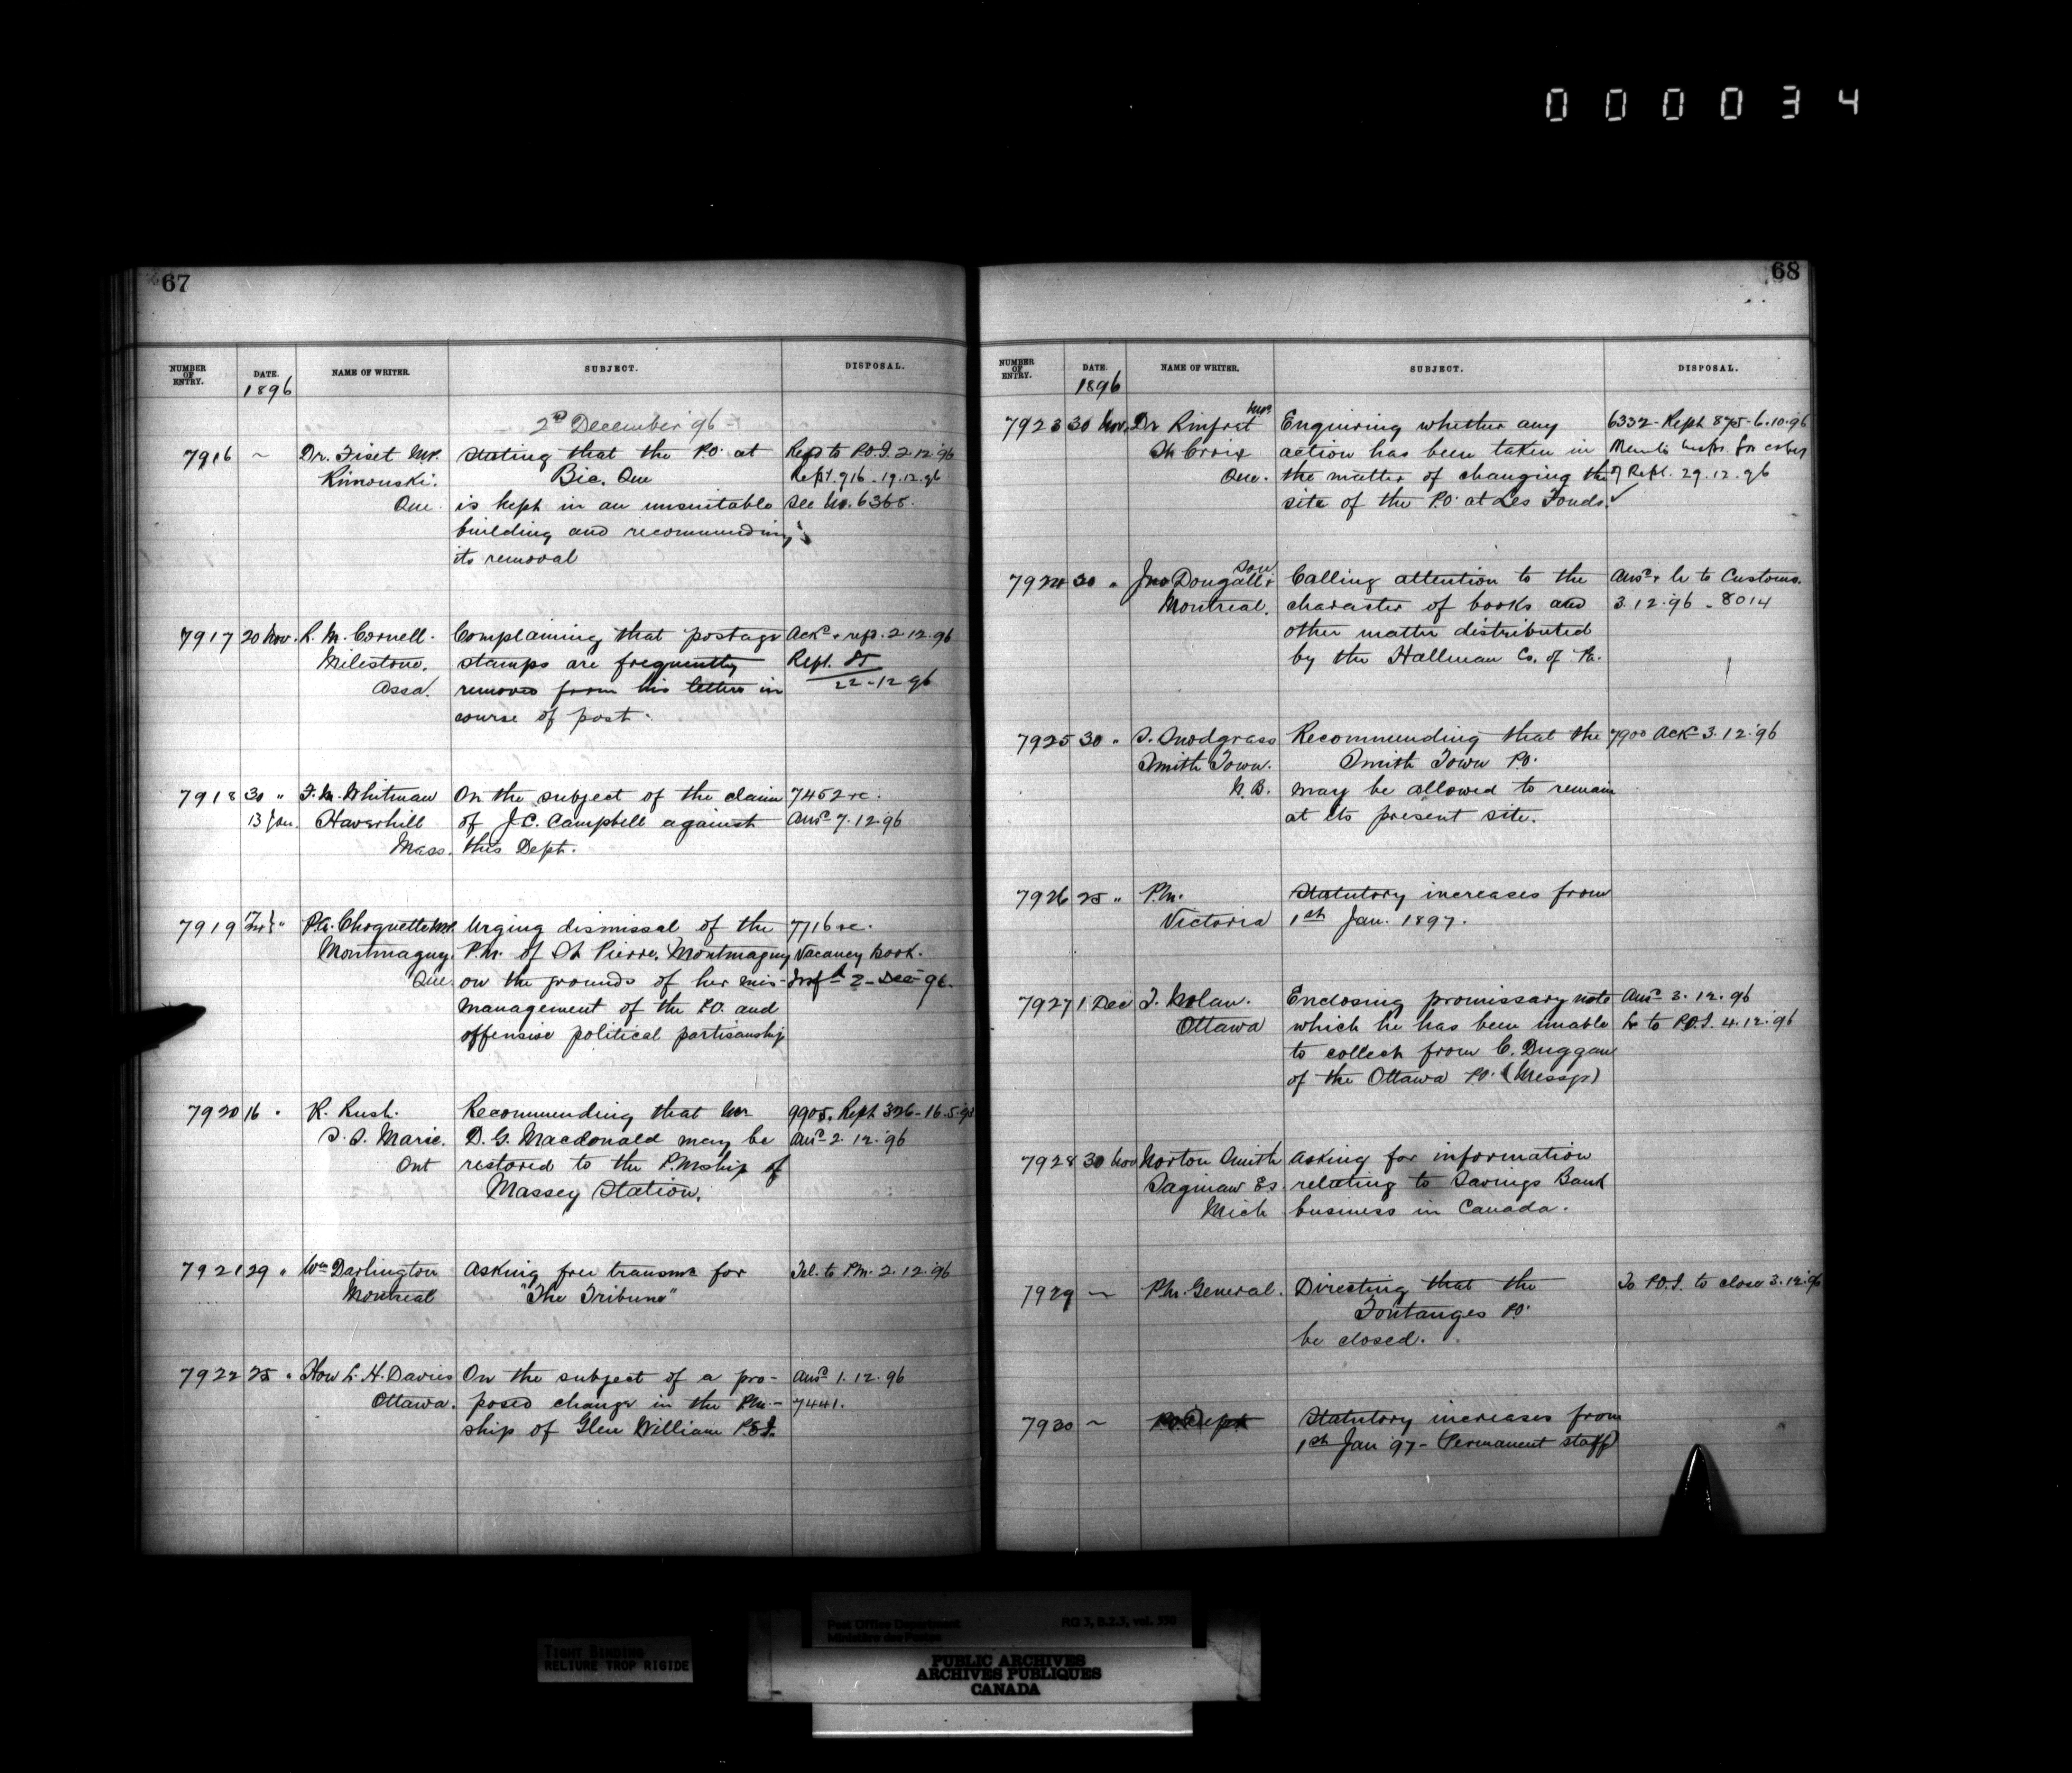 000034
67
NUMBER OF ENTRY. DATE. NAME OF WRITER. SUBJECT. DISPOSAL.
1896
2nd December '96
7916 ~ Dr. Fiset M.P. Stating that the P.O. at Refd to P.O.I. 2.12.96
Rimouski. Bic. Que Rept. 916 - 19.12.96
Que. is kept in an unsuitable See No. 6368.
building and recommending
its removal
7917 20 Nov. R. M. Cornell. Complaining that postage Ackd & rep. 2.12.96
Milestone. stamps are frequently Rept. 85
Assa. removed from his letters in 22-12 96
course of post.
7918 30 " F. M. Whitman On the subject of the claim 7452 rc.
13 Jan. Haverhill of J.C. Campbell against Ansd 7.12.96
Mass. this Dept.
7919 " P.A. Choquette M.P. Urging dismissal of the 7716 rc.
Montmagny. P.M. of St Pierre, Montmagny Vacancy book.
Que. on the grounds of her mis- Infd 2 - Dec - 96.
management of the P.O. and
offensive political partisanship
7920 16 " R. Rush. Recommending that Mr 9905. Rept 326 - 16.5.
S. S. Marie. D. G. Macdonald may be Ansd 2.12.96
Ont restored to the P.Mship of
Massey Station.
7921 29 " Wm Darlington Asking free transmn for Tel. to P.M. 2.12.96
Montreal "The Tribune"
7922 25 " Hon L. H. Davies On the subject of a pro- Ansd 1.12.96
Ottawa. posed change in the P.M.- 7441.
ship of Glen William P.E.I.
68
NUMBER OF ENTRY. DATE. NAME OF WRITER. SUBJECT. DISPOSAL.
1896
7923 30 Nov. Dr Rinfret M.P. Enquiring whether any 6332 - Rept 875 - 6.10.96
St Croix action has been taken in Memo to Inspr. for copy
Que. the matter of changing the of Rept. 29.12.96
site of the P.O. at Les Fonds.
7924 30 " Jno Dougall & Son Calling attention to the Ansd & to Customs.
Montreal. character of books and 3.12.96 - 8014
other matter distributed
by the Hallman Co. of Pa.
7925 30 " S. Snodgrass Recommending that the 7900 Ackd 3.12.96
Smith Town. Smith Town P.O.
N.B. may be allowed to remain
at its present site.
7926 25 " P.M. Statutory increases from
Victoria 1st Jan. 1897.
7927 1 Dec T. Nolan. Enclosing promissary note Ansd 3.12.96
Ottawa which he has been unable to P.O.I. 4.12.96
to collect from C. Duggan
of the Ottawa P.O. (Messgr)
7928 30 Nov Norton Smith Asking for information
Saginaw Es. relating to Savings Bank
Mich business in Canada.
7929 ~ P.M. General. Directing that the To P.O.I. to close 3.12.96
Fontanges P.O.
be closed.
7930 ~ P.O. Dept Statutory increases from
1st Jan '97 - (Permanent staff)
TIGHT BINDING
RELIURE TROP RIGIDE
Post Office Department RG 3, B.2.3, vol. 550
Ministère des Postes
PUBLIC ARCHIVES
ARCHIVES PUBLIQUES
CANADA